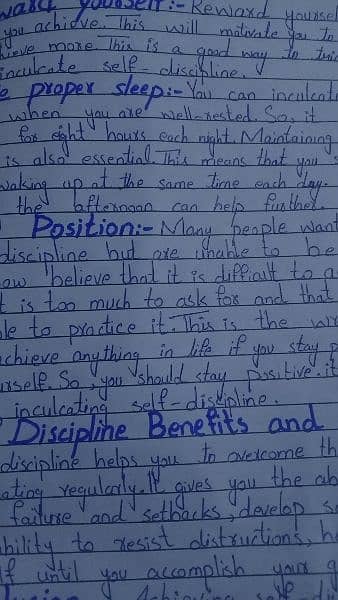 yourself:- Reward yoursel
you achieve. This will motivate you to
ieve more. This is a good way to
inculcate self-discipline.
proper sleep:- You can inculcat
when you are well-rested. So, it
for eight hours each night. Maintaining
is also essential. This means that you s
waking up at the same time each day.
the afternoon can help further.
Position:- Many people want
discipline but are unable to be
ow believe that it is difficult to a
t is too much to ask for and that
le to practice it. This is the wr
chieve anything in life if you stay p
urself. So, you should stay positive. it
inculcating self-disipline.
Discipline Benefits and
discipline helps you to overcome th
ating regularly. It gives you the ab
failure and setbacks, develop s
bility to resist distructions, h
f until you accomplish your g